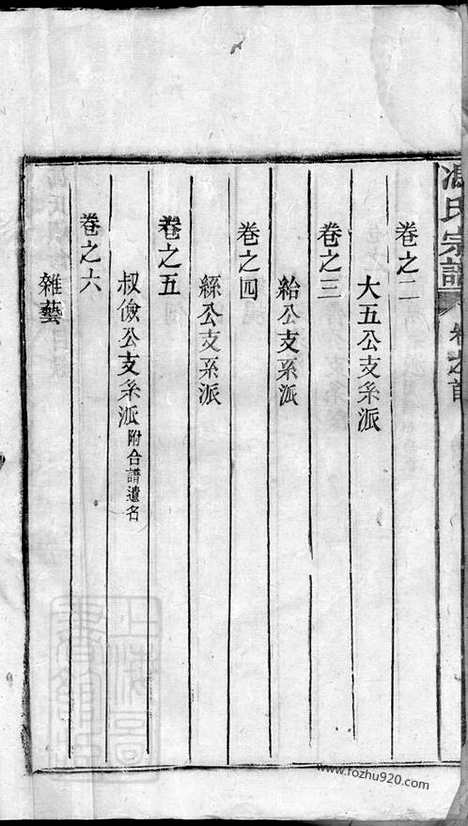 馮氏宗譜
卷之首
卷之二
大五公支系派
卷之三
給公支系派
卷之四
繇公支系派
卷之五
叔儉公支系派 附合譜遺名
卷之六
雜藝
www.fozhu920.com